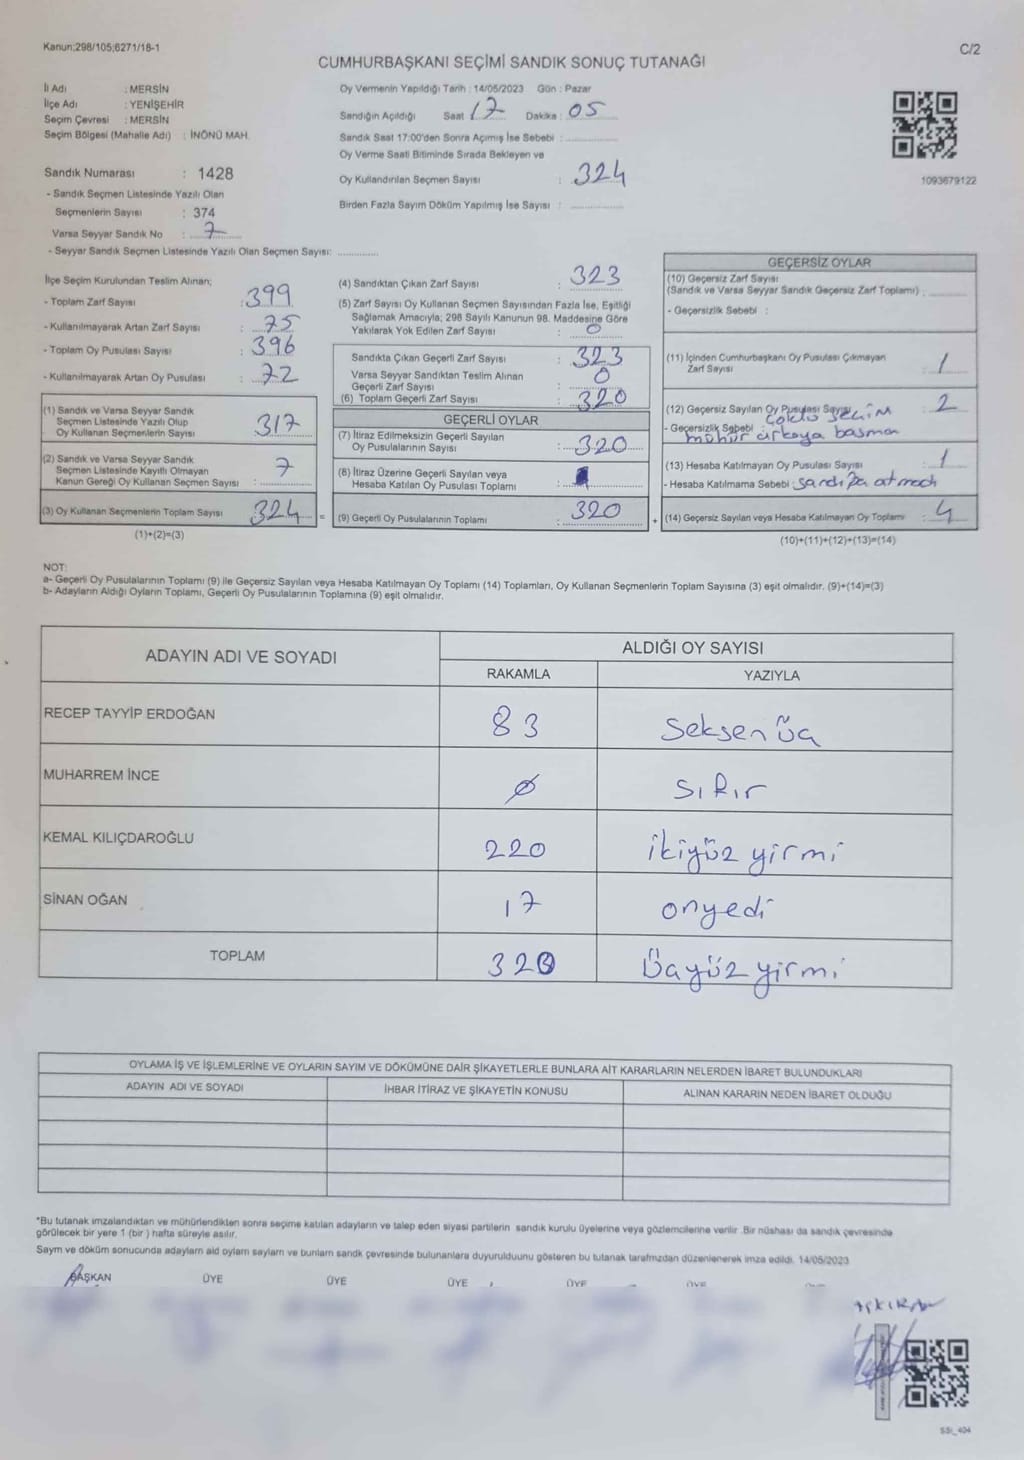 Kanun;298/105;6271/18-1
C/2
CUMHURBAŞKANI SEÇİMİ SANDIK SONUÇ TUTANAĞI
İl Adı : MERSİN
İlçe Adı : YENİŞEHİR
Seçim Çevresi : MERSİN
Seçim Bölgesi (Mahalle Adı) : İNÖNÜ MAH.
Sandık Numarası : 1428
- Sandık Seçmen Listesinde Yazılı Olan
Seçmenlerin Sayısı : 374
Varsa Seyyar Sandık No : 7
- Seyyar Sandık Seçmen Listesinde Yazılı Olan Seçmen Sayısı: ............
Oy Vermenin Yapıldığı Tarih : 14/05/2023 Gün : Pazar
Sandığın Açıldığı Saat 17 Dakika : 05
Sandık Saat 17:00'den Sonra Açımış İse Sebebi : ............
Oy Verme Saati Bitiminde Sırada Bekleyen ve
Oy Kullandırılan Seçmen Sayısı : 324
Birden Fazla Sayım Döküm Yapılmış İse Sayısı : ............
1093679122
İlçe Seçim Kurulundan Teslim Alınan;
- Toplam Zarf Sayısı : 399
- Kullanılmayarak Artan Zarf Sayısı : 75
- Toplam Oy Pusulası Sayısı : 396
- Kullanılmayarak Artan Oy Pusulası : 72
(1) Sandık ve Varsa Seyyar Sandık
Seçmen Listesinde Yazılı Olup
Oy Kullanan Seçmenlerin Sayısı : 317
(2) Sandık ve Varsa Seyyar Sandık
Seçmen Listesinde Kayıtlı Olmayan
Kanun Gereği Oy Kullanan Seçmen Sayısı : 7
(3) Oy Kullanan Seçmenlerin Toplam Sayısı : 324 =
(1)+(2)=(3)
(4) Sandıktan Çıkan Zarf Sayısı : 323
(5) Zarf Sayısı Oy Kullanan Seçmen Sayısından Fazla İse, Eşitliği
Sağlamak Amacıyla; 298 Sayılı Kanunun 98. Maddesine Göre
Yakılarak Yok Edilen Zarf Sayısı : 0
Sandıkta Çıkan Geçerli Zarf Sayısı : 323
Varsa Seyyar Sandıktan Teslim Alınan
Geçerli Zarf Sayısı : 0
(6) Toplam Geçerli Zarf Sayısı : 320
GEÇERLİ OYLAR
(7) İtiraz Edilmeksizin Geçerli Sayılan
Oy Pusulalarının Sayısı : 320
(8) İtiraz Üzerine Geçerli Sayılan veya
Hesaba Katılan Oy Pusulası Toplamı :
(9) Geçerli Oy Pusulalarının Toplamı : 320 +
GEÇERSİZ OYLAR
(10) Geçersiz Zarf Sayısı
(Sandık ve Varsa Seyyar Sandık Geçersiz Zarf Toplamı) : ............
- Geçersizlik Sebebi :
(11) İçinden Cumhurbaşkanı Oy Pusulası Çıkmayan
Zarf Sayısı : 1
(12) Geçersiz Sayılan Oy Pusulası Sayısı : 2
- Geçersizlik Sebebi : çoklu seçim
mühür arkaya basman
(13) Hesaba Katılmayan Oy Pusulası Sayısı : 1
- Hesaba Katılmama Sebebi : sandığa atmadı
(14) Geçersiz Sayılan veya Hesaba Katılmayan Oy Toplamı : 4
(10)+(11)+(12)+(13)=(14)
NOT:
a- Geçerli Oy Pusulalarının Toplamı (9) ile Geçersiz Sayılan veya Hesaba Katılmayan Oy Toplamı (14) Toplamları, Oy Kullanan Seçmenlerin Toplam Sayısına (3) eşit olmalıdır. (9)+(14)=(3)
b- Adayların Aldığı Oyların Toplamı, Geçerli Oy Pusulalarının Toplamına (9) eşit olmalıdır.
ADAYIN ADI VE SOYADI
ALDIĞI OY SAYISI
RAKAMLA YAZIYLA
RECEP TAYYİP ERDOĞAN 83 Seksen üç
MUHARREM İNCE 0 Sıfır
KEMAL KILIÇDAROĞLU 220 ikiyüz yirmi
SİNAN OĞAN 17 onyedi
TOPLAM 320 Üçyüz yirmi
OYLAMA İŞ VE İŞLEMLERİNE VE OYLARIN SAYIM VE DÖKÜMÜNE DAİR ŞİKAYETLERLE BUNLARA AİT KARARLARIN NELERDEN İBARET BULUNDUKLARI
ADAYIN ADI VE SOYADI İHBAR İTİRAZ VE ŞİKAYETİN KONUSU ALINAN KARARIN NEDEN İBARET OLDUĞU
*Bu tutanak imzalandıktan ve mühürlendikten sonra seçime katılan adayların ve talep eden siyasi partilerin sandık kurulu üyelerine veya gözlemcilerine verilir .Bir nüshası da sandık çevresinde
görülecek bir yere 1 (bir ) hafta süreyle asılır.
Sayım ve döküm sonucunda adayların ald oyların sayların ve bunların sandk çevresinde bulunanlara duyurulduunu gösteren bu tutanak tarafmzdan düzenlenerek imza edildi. 14/05/2023
BAŞKAN ÜYE ÜYE ÜYE ÜYE ÜYE
SSI_404